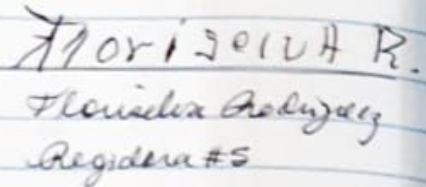 Floriselva R.
Floriselva Rodriguez
Regidora #5